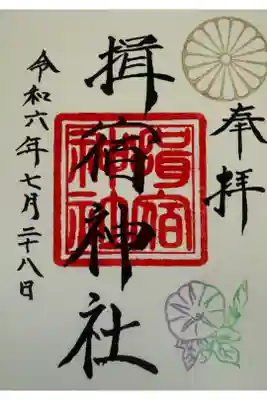 奉拝
揖宿神社
揖宿神社
令和六年七月二十八日